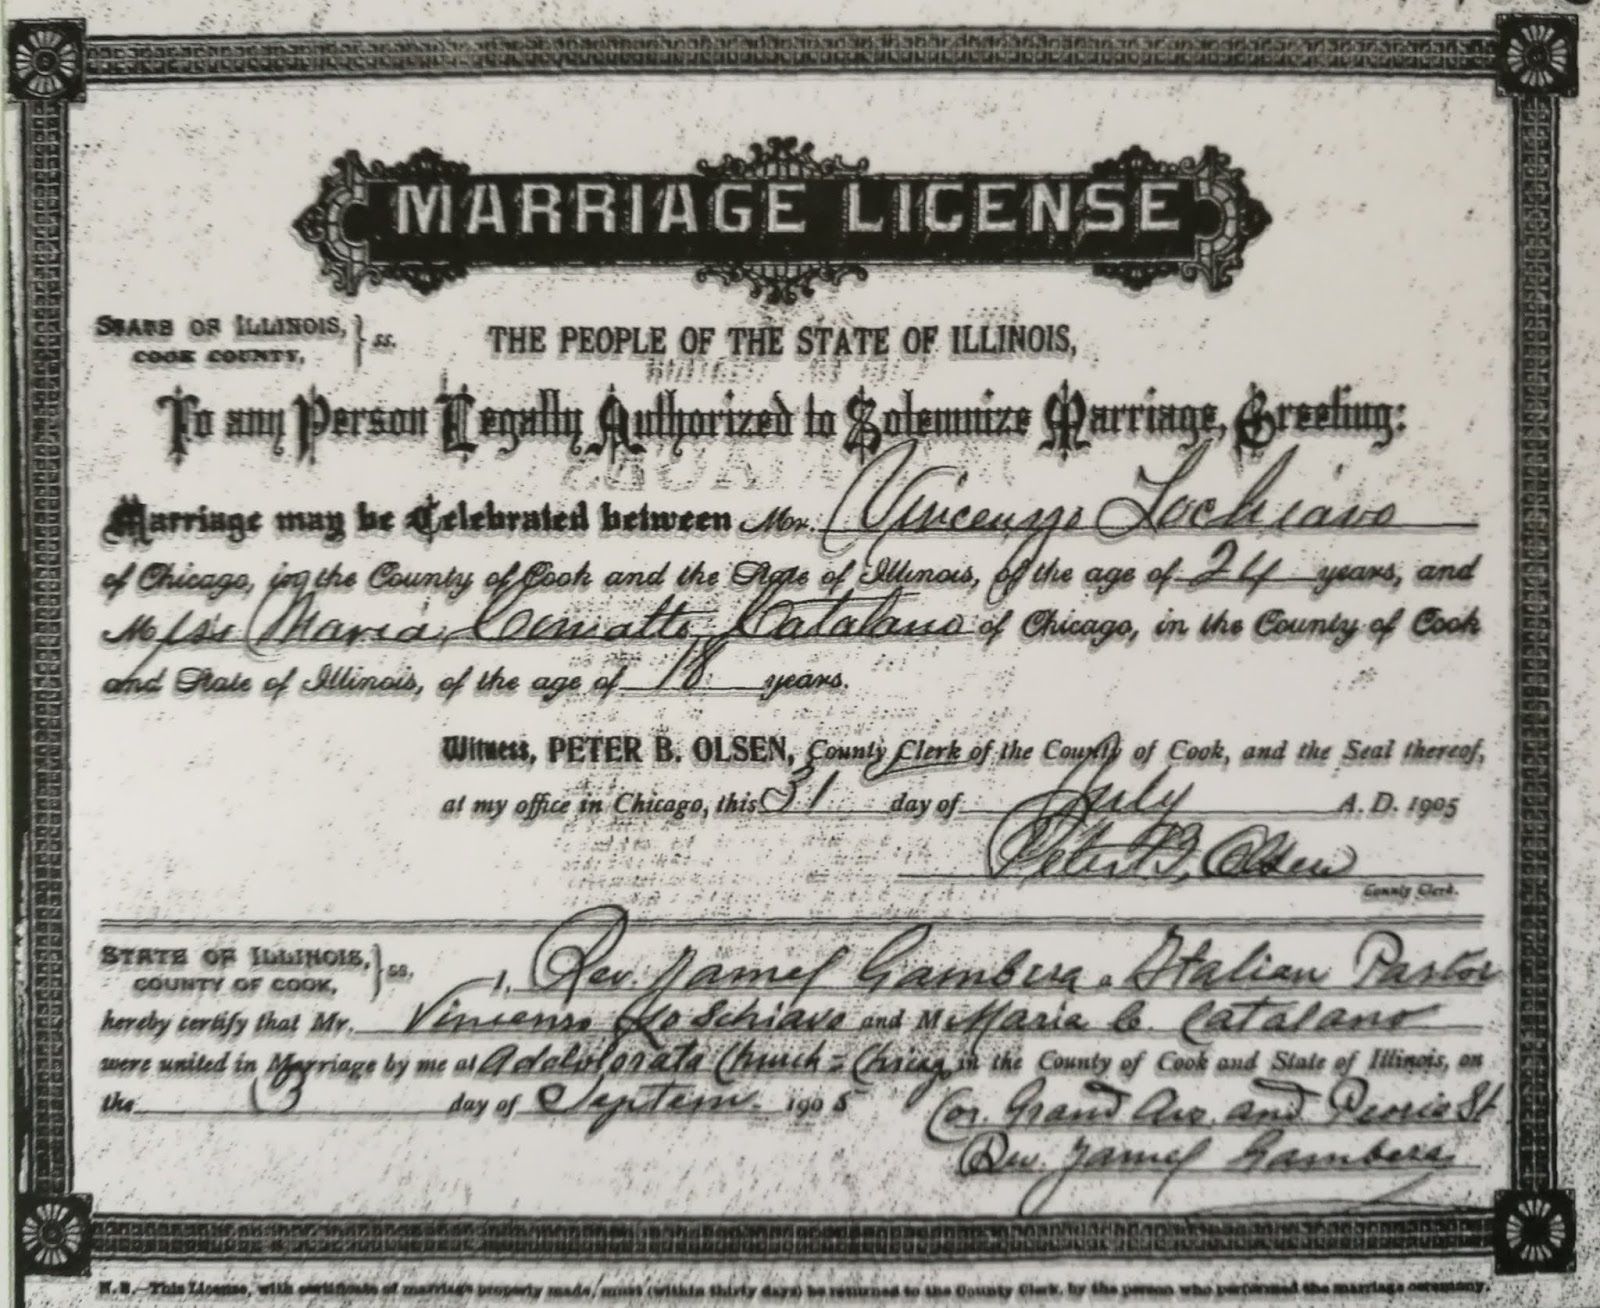 MARRIAGE LICENSE
STATE OF ILLINOIS, } ss.
COOK COUNTY,
THE PEOPLE OF THE STATE OF ILLINOIS,
To any Person Legally Authorized to Solemnize Marriage, Greeting:
Marriage may be Celebrated between Mr. Vincenzo Lochiavo
of Chicago, in the County of Cook and the State of Illinois, of the age of 24 years, and
Miss Maria Catalano of Chicago, in the County of Cook
and State of Illinois, of the age of 18 years.
Witness, PETER B. OLSEN, County Clerk of the County of Cook, and the Seal thereof,
at my office in Chicago, this 31 day of July A. D. 1905
Peter B. Olsen
County Clerk.
STATE OF ILLINOIS, } ss.
COUNTY OF COOK,
I, Rev. James Gambera a Italian Pastor
hereby certify that Mr. Vincenzo Lo Schiavo and M Maria C. Catalano
were united in Marriage by me at Addolorata Church = Chicag in the County of Cook and State of Illinois, on
the 3 day of Septem. 1905 Cor. Grand Ave. and Peoria St
Rev. James Gambera
N. B.—This License, with certificate of marriage properly made, must (within thirty days) be returned to the County Clerk, by the person who performed the marriage ceremony.